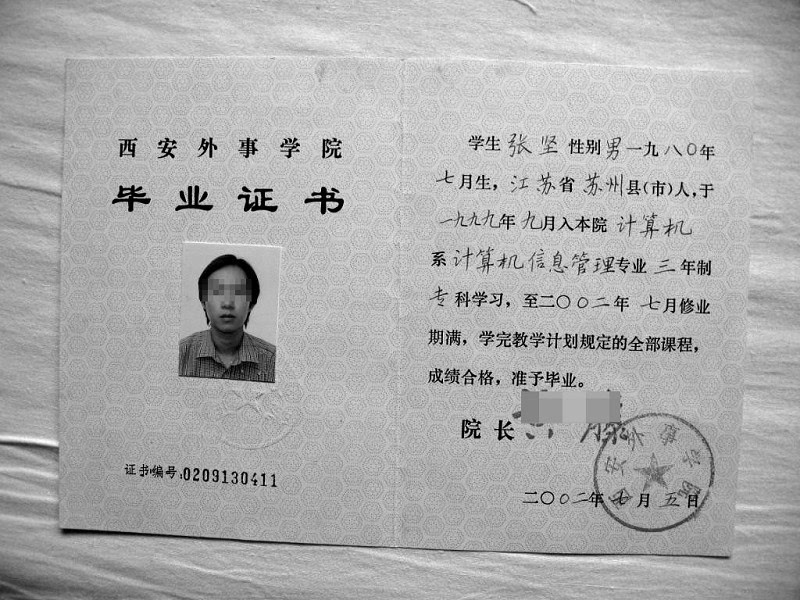 西安外事学院
毕业证书
证书编号:0209130411
学生 张坚 性别 男 一九八〇年
七月生，江苏省 苏州县(市)人，于
一九九九年 九月入本院 计算机
系 计算机信息管理专业 三年制
专科学习，至二〇〇二年 七月修业
期满，学完教学计划规定的全部课程，
成绩合格，准予毕业。
院长
西安外事学院
二〇〇二年 七月五日